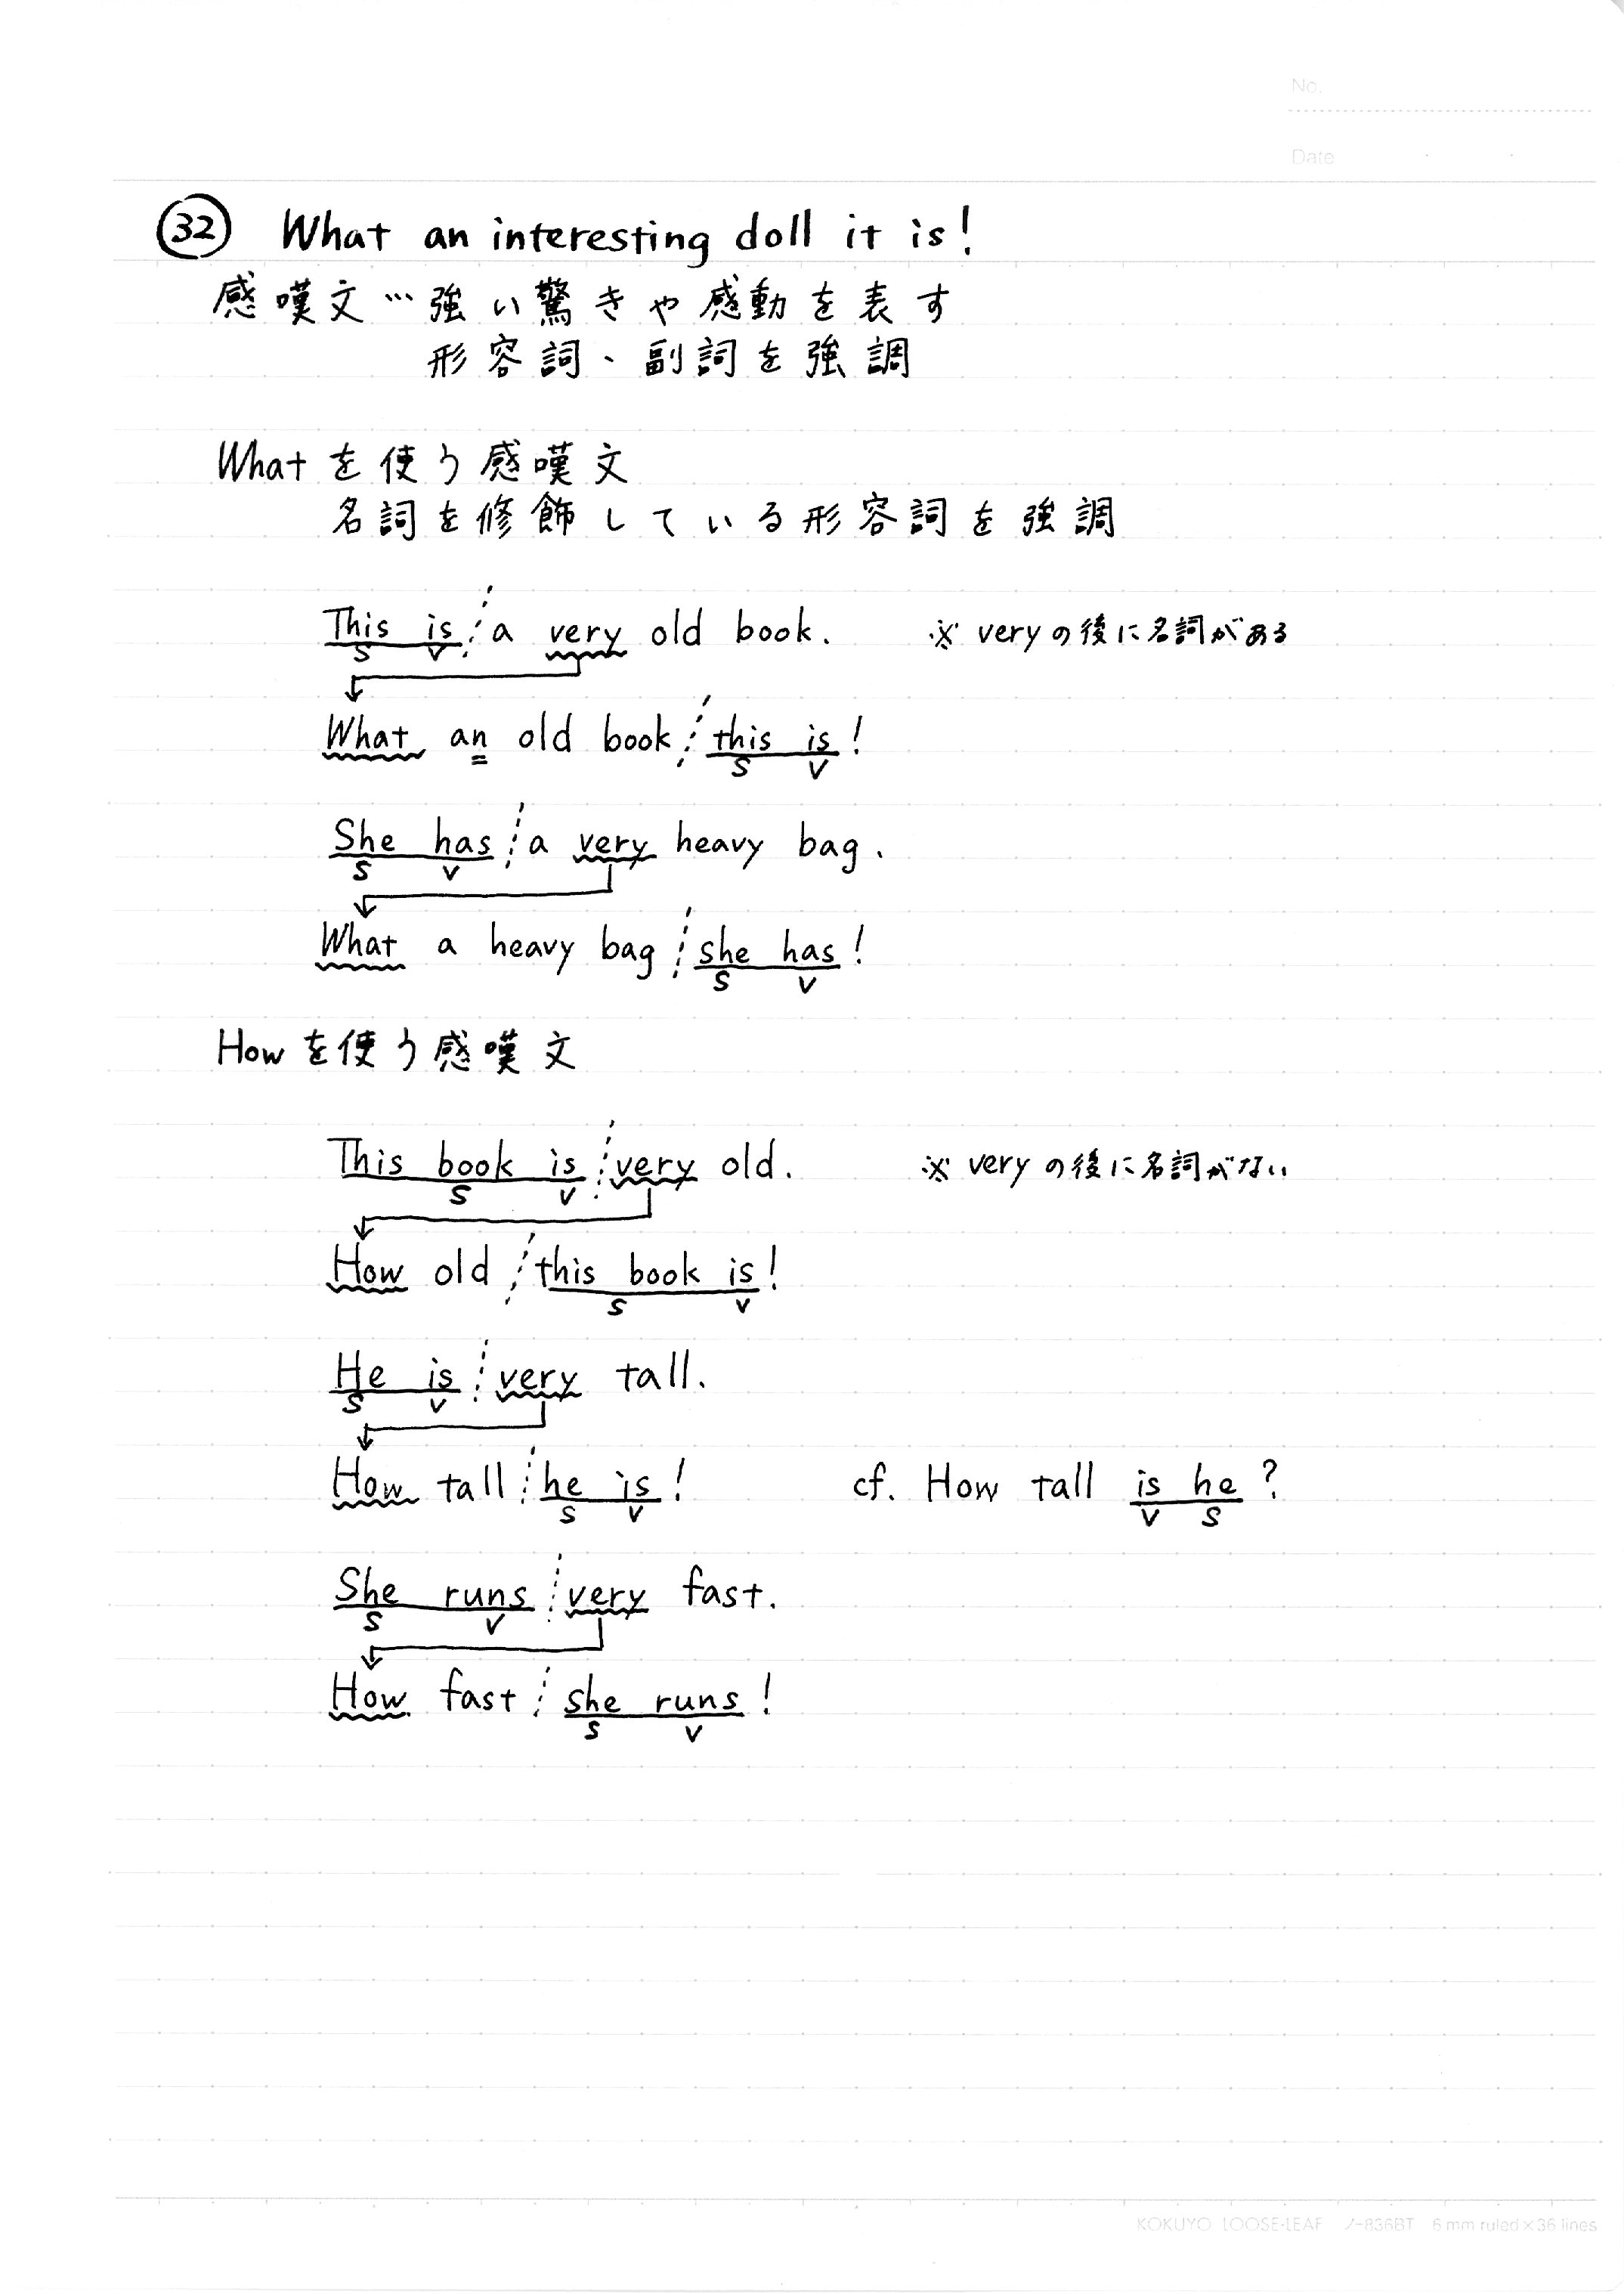 No.
Date
32 What an interesting doll it is!
感嘆文…強い驚きや感動を表す
形容詞、副詞を強調
Whatを使う感嘆文
名詞を修飾している形容詞を強調
This is a very old book. ※ veryの後に名詞がある
S V
What an old book this is!
S V
She has a very heavy bag.
S V
What a heavy bag she has!
S V
Howを使う感嘆文
This book is very old. ※ veryの後に名詞がない
S V
How old this book is!
S V
He is very tall.
S V
How tall he is! cf. How tall is he?
S V V S
She runs very fast.
S V
How fast she runs!
S V
KOKUYO LOOSE-LEAF ノ-836BT 6 mm ruled×36 lines